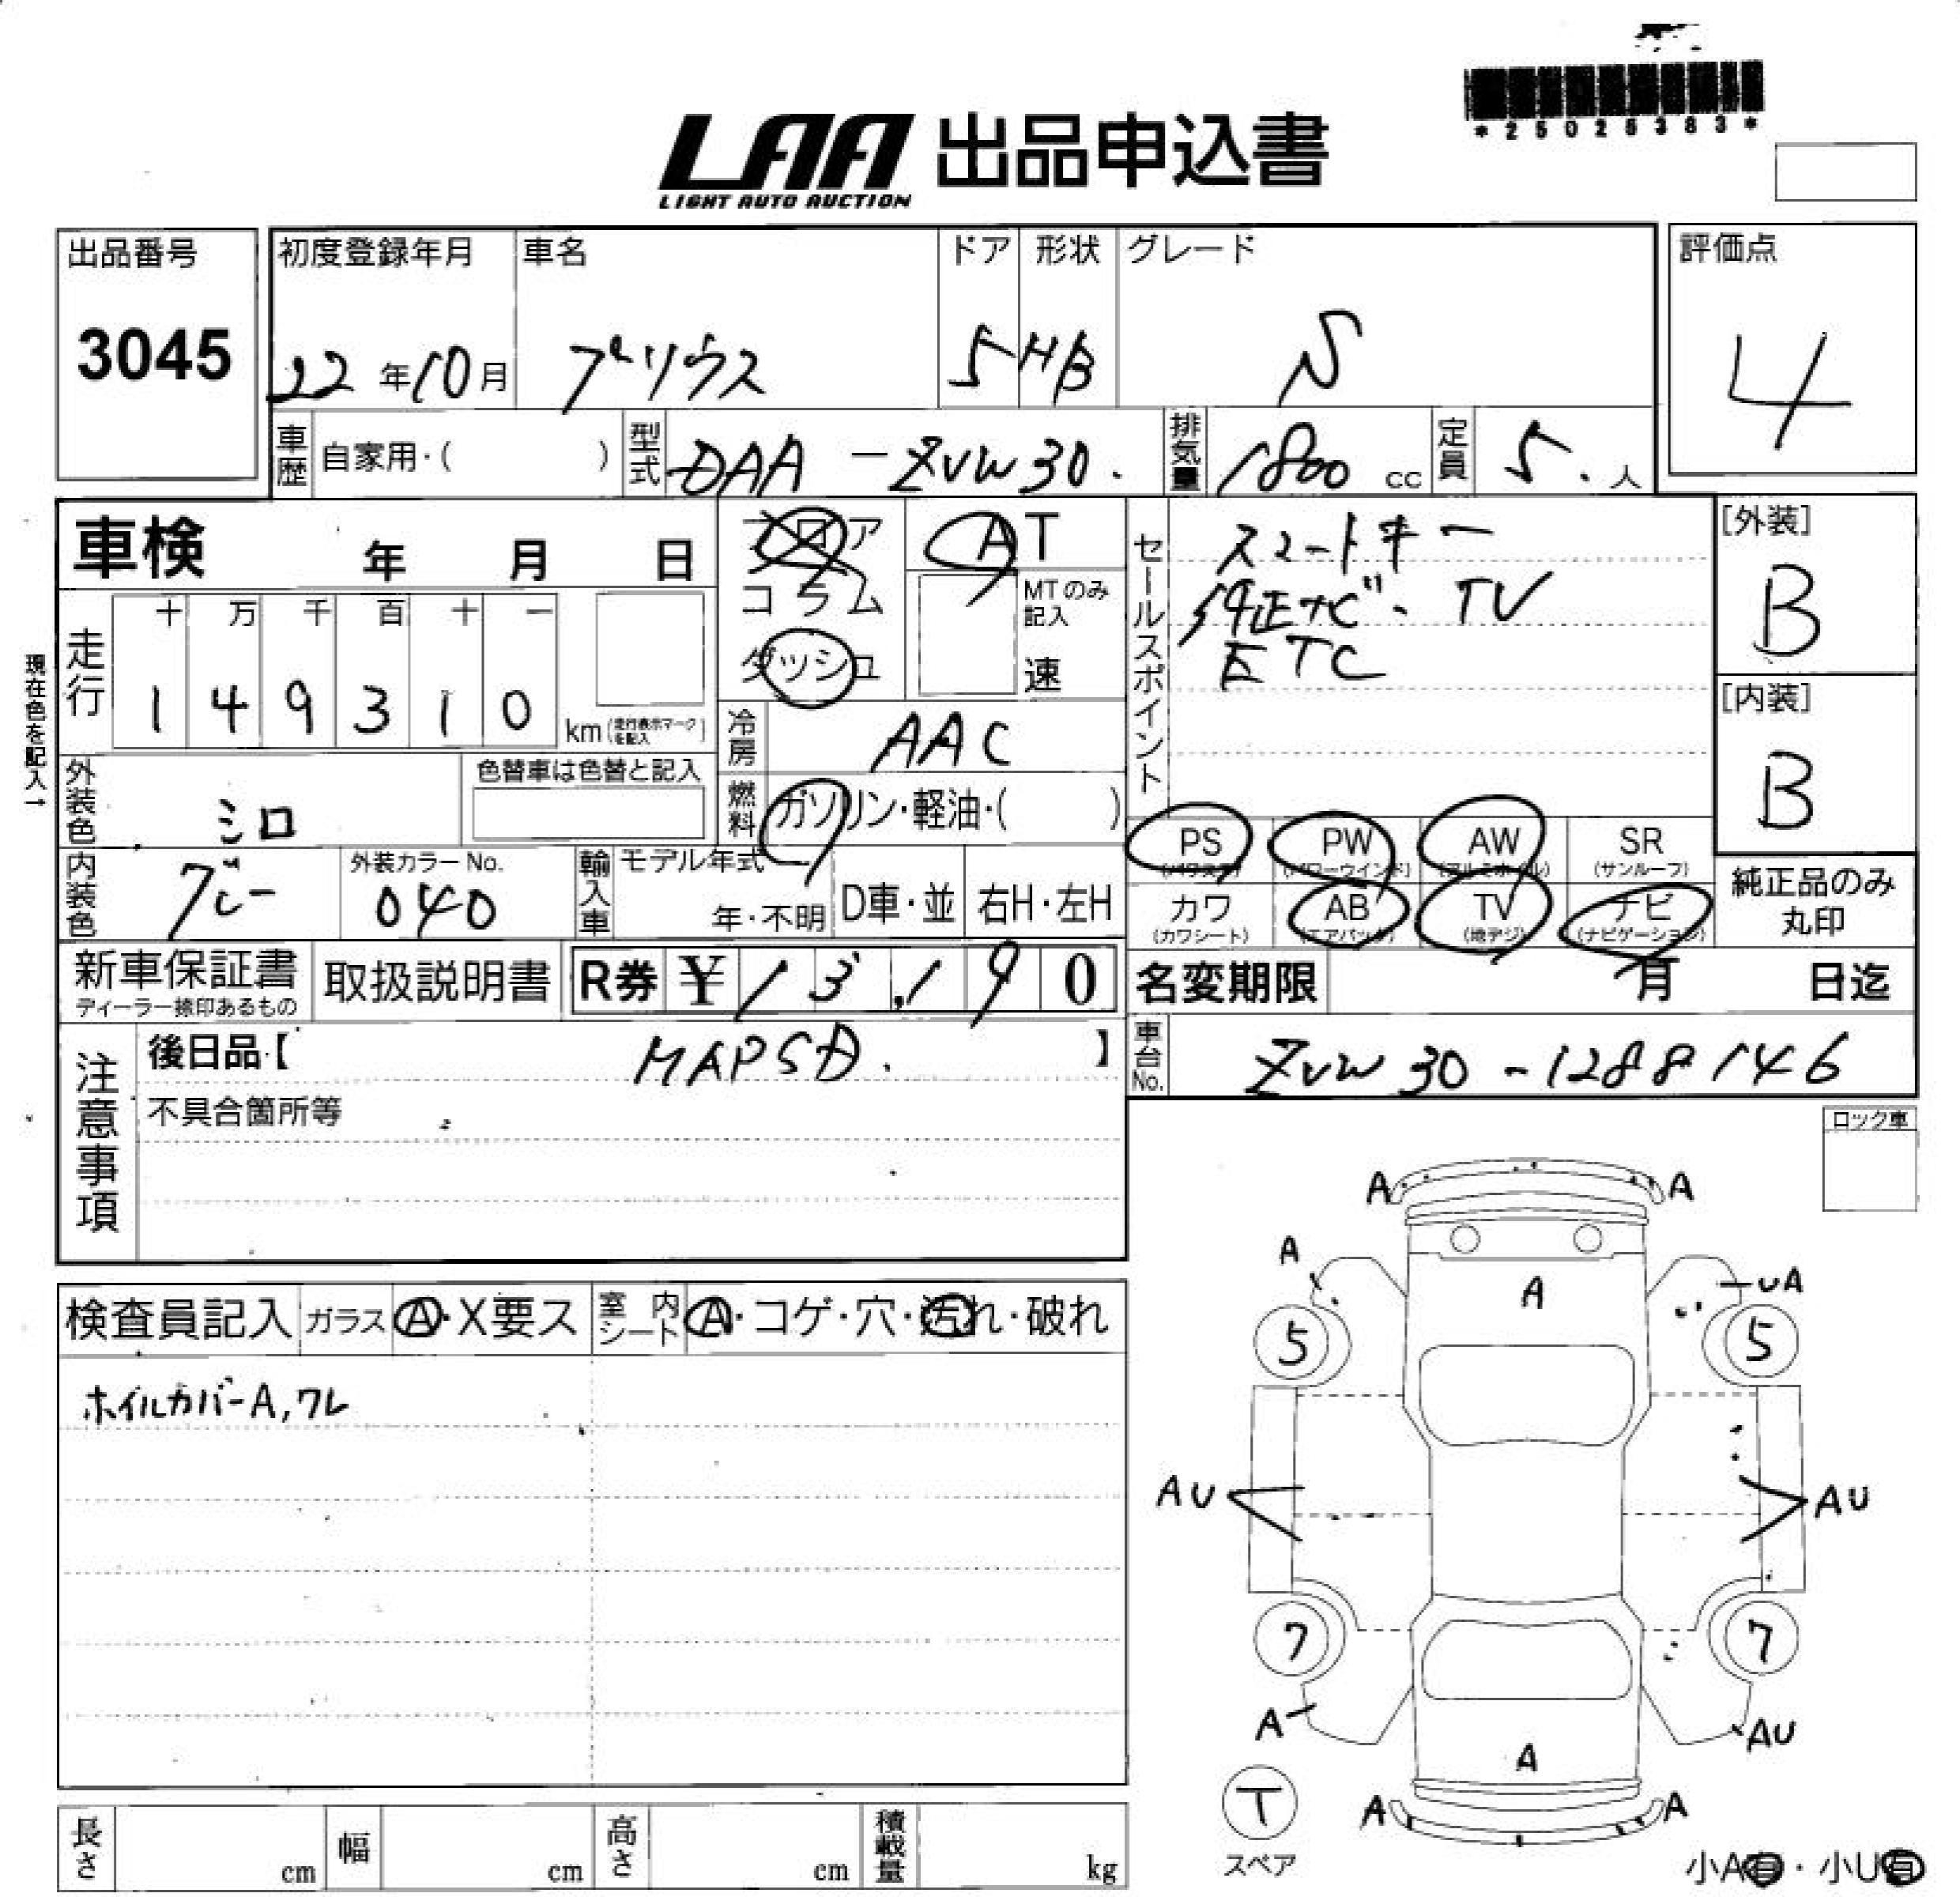 *25025383*
LAA 出品申込書
LIGHT AUTO AUCTION
出品番号
3045
初度登録年月
22年10月
車名
プリウス
ドア
5
形状
HB
グレード
S
評価点
4
車歴
自家用・( )
型式
DAA-ZVW30.
排気量
1800 cc
定員
5.人
車検 年 月 日
フロア
コラム
ダッシュ
AT
MTのみ記入
速
セールスポイント
スマートキー
純正ナビ・TV
ETC
[外装]
B
[内装]
B
現在色を記入→
走行
十 万 千 百 十 一
1 4 9 3 1 0
km(走行表示マークを記入)
冷房
AAC
外装色
シロ
色替車は色替と記入
燃料
ガソリン・軽油・( )
PS (パワステ)
PW (パワーウインド)
AW (アルミホイル)
SR (サンルーフ)
カワ (カワシート)
AB (エアバック)
TV (地デジ)
ナビ (ナビゲーション)
純正品のみ丸印
内装色
グレー
外装カラーNo.
040
輸入車
モデル年式
年・不明
D車・並
右H・左H
新車保証書
ディーラー捺印あるもの
取扱説明書
R券 ¥13,190
名変期限 月 日迄
注意事項
後日品・【 MAPSD. 】
不具合箇所等
車台No.
ZVW30-1288146
ロック車
検査員記入
ガラス
A・X要ス
室内シート
A・コゲ・穴・汚れ・破れ
ホイルカバーA,ワレ
A A
A
A
UA
5 5
AU AU
7 7
A AU
A
A A
T
スペア
長さ cm
幅 cm
高さ cm
積載量 kg
小A有・小U有